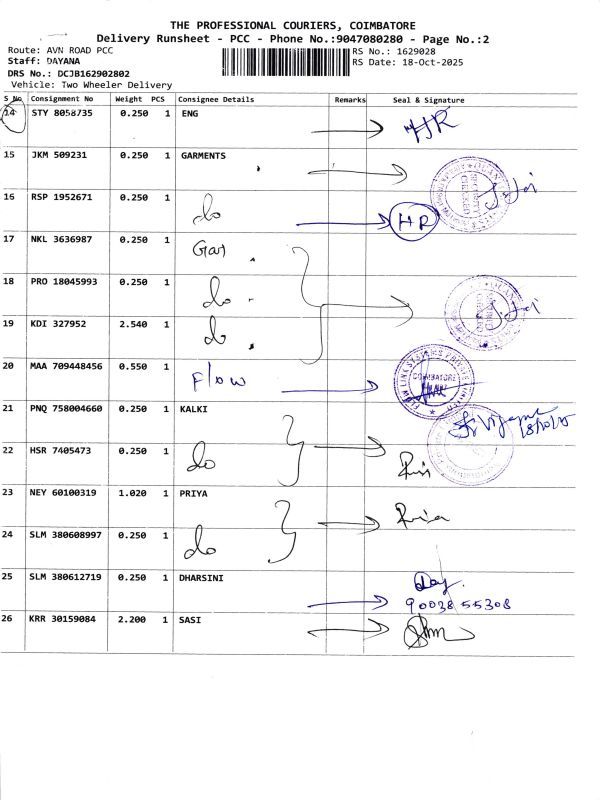 THE PROFESSIONAL COURIERS, COIMBATORE
Delivery Runsheet - PCC - Phone No.:9047080280 - Page No.:2
Route: AVN ROAD PCC RS No.: 1629028
Staff: DAYANA RS Date: 18-Oct-2025
DRS No.: DCJB162902802
Vehicle: Two Wheeler Delivery
S No Consignment No Weight PCS Consignee Details Remarks Seal & Signature
14 STY 8058735 0.250 1 ENG HR
15 JKM 509231 0.250 1 GARMENTS
16 RSP 1952671 0.250 1 do HR
17 NKL 3636987 0.250 1 Gar
18 PRO 18045993 0.250 1 do
19 KDI 327952 2.540 1 do
20 MAA 709448456 0.550 1 Flow COIMBATORE
21 PNQ 758004660 0.250 1 KALKI 18/10/25
22 HSR 7405473 0.250 1 do
23 NEY 60100319 1.020 1 PRIYA Priya
24 SLM 380608997 0.250 1 do
25 SLM 380612719 0.250 1 DHARSINI Day.
90038 55308
26 KRR 30159084 2.200 1 SASI